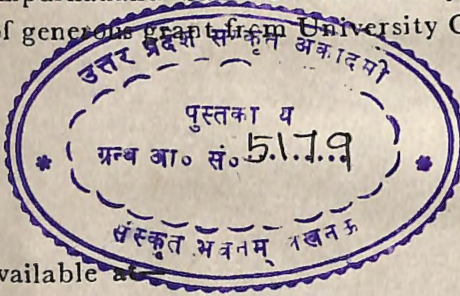 of generous grant from University G
उत्तर प्रदेश संस्कृत अकादमी
पुस्तका य
ग्रन्थ आ० सं० 5179
संस्कृत भवनम् खनऊ
vailable at